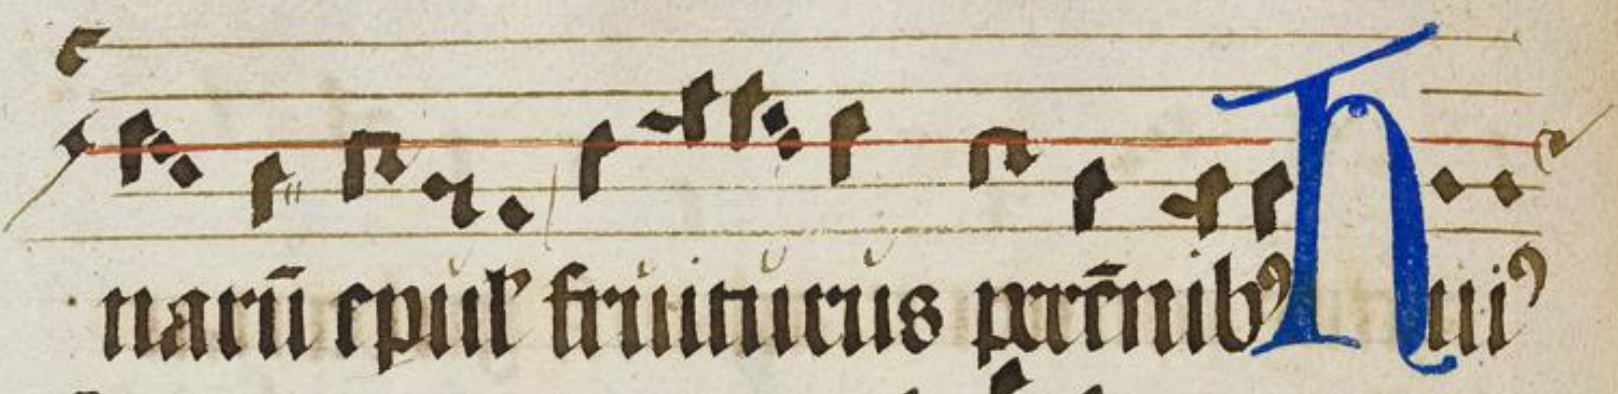 narū epul' fruiturus p̲erēnibꝰ Huiꝰ